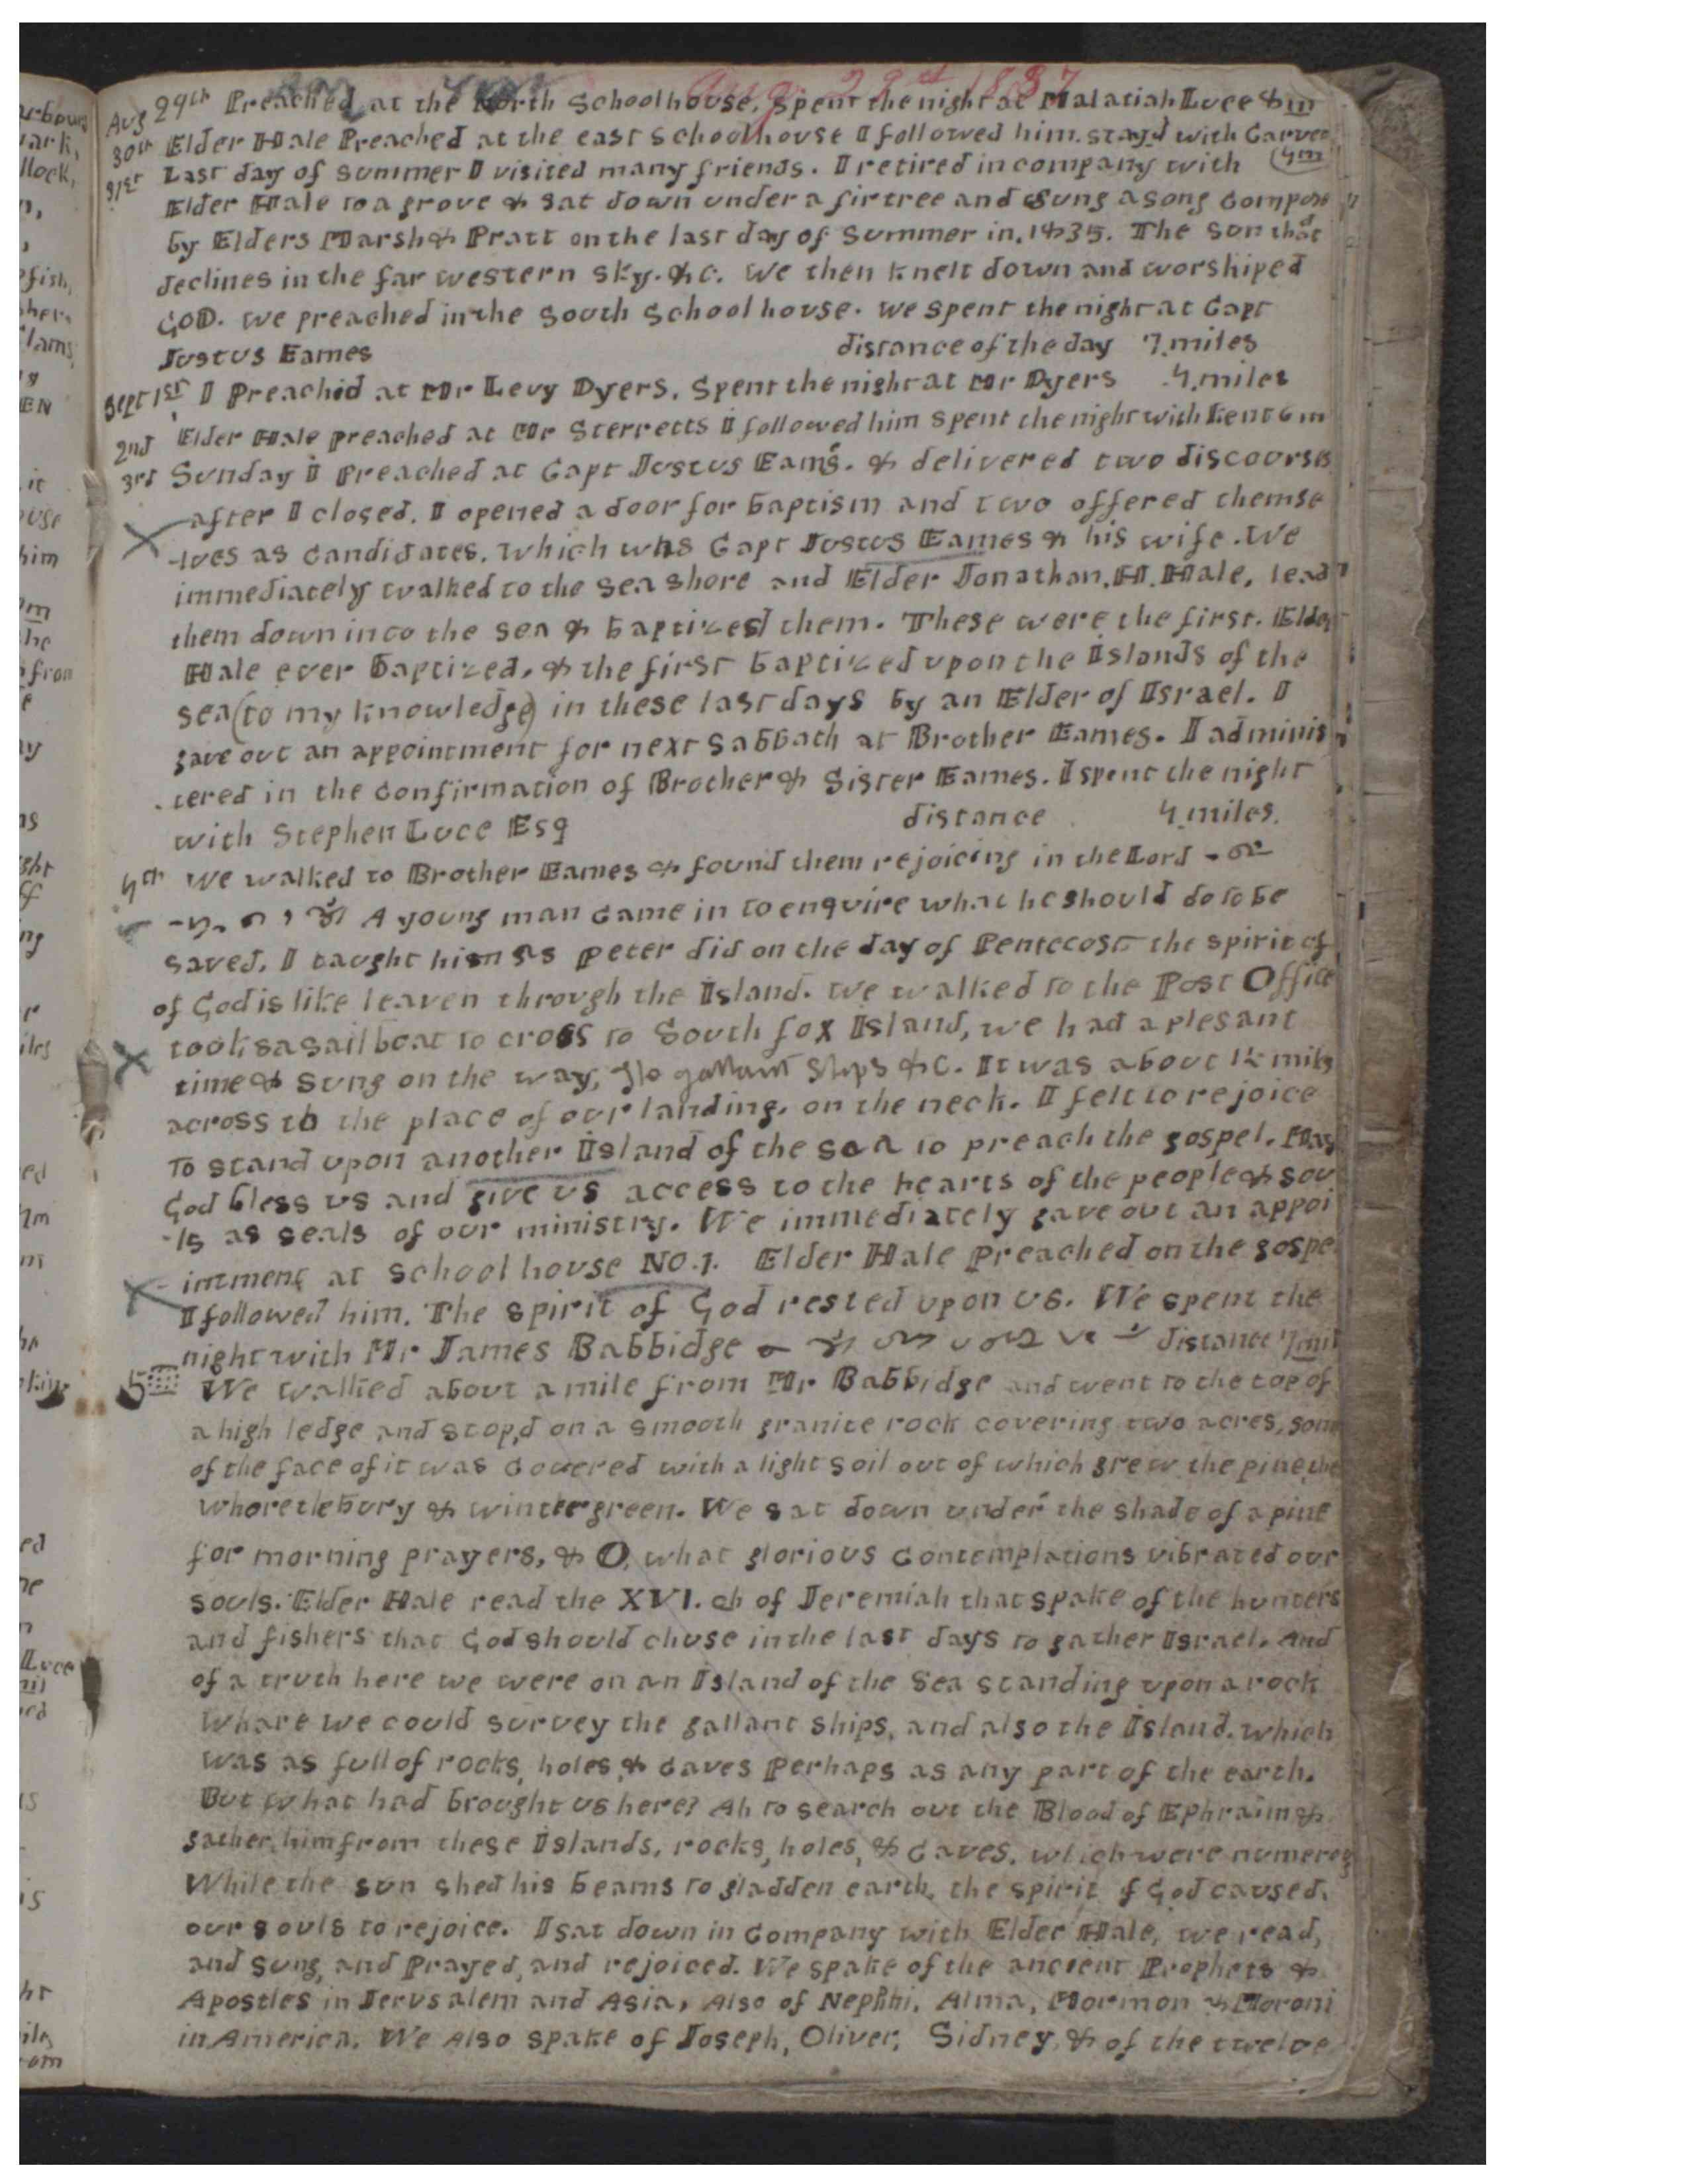 Aug. 29th 1837
Aug 29th Preached at the North Schoolhouse, spent the night at Malatiah Luce 8 m
30th Elder Hale Preached at the east Schoolhouse I followed him. stayd with Carver
31st Last day of summer I visited many friends. I retired in company with 4 m
Elder Hale to a grove & sat down under a fir tree and sung a song Composed
by Elders Marsh & Pratt on the last day of Summer in. 1835. The Sun that
declines in the far western sky. &c. We then knelt down and worshiped
GOD. we preached in the South School house. we spent the night at Capt
Justus Eames distance of the day 7. miles
Sept 1st I Preached at Mr Levy Dyers. Spent the night at Mr Dyers 4. miles
2nd Elder Hale preached at Mr Sterretts I followed him spent the night with Kent 6 m
3rd Sunday I Preached at Capt Justus Eams. & delivered two discourses
after I closed. I opened a door for baptism and two offered themse
-lves as Candidates. which was Capt Justus Eames & his wife. We
immediately walked to the sea shore and Elder Jonathan. H. Hale, lead
them down into the sea & baptized them. These were the first. Elder
Hale ever baptized, & the first baptized upon the Islands of the
sea (to my knowledge) in these last days by an Elder of Israel. I
gave out an appointment for next Sabbath at Brother Eames. I adminis
-tered in the Confirmation of Brother & Sister Eames. I spent the night
with Stephen Luce Esq distance 4. miles.
4th We walked to Brother Eames & found them rejoicing in the Lord
A young man Came in to enquire what he should do to be
saved. I taught him as Peter did on the day of Pentecost the spirit of
of God is like leaven through the Island. we walked to the Post Office
took a sail boat to cross to South fox Island, we had a plesant
time & sung on the way, Ye gallant Ships &c. It was about 1½ mile
across to the place of our landing. on the neck. I felt to rejoice
To stand upon another Island of the sea to preach the gospel. May
God bless us and give us access to the hearts of the people & sou
-ls as seals of our ministry. We immediately gave out an appoi
-intment at School house No. 1. Elder Hale Preached on the gospel
I followed him. The spirit of God rested upon us. We spent the
night with Mr James Babbidge distance 7 mil
5 We walked about a mile from Mr Babbidge and went to the top of
a high ledge and stop,d on a smooth granite rock covering two acres, some
of the face of it was Covered with a light soil out of which grew the pine, the
whoretlebury & wintergreen. We sat down under the shade of a pine
for morning prayers, & O, what glorious Contemplations vibrated our
souls. Elder Hale read the XVI. ch of Jeremiah that spake of the hunters
and fishers that God should chuse in the last days to gather Israel. And
of a truth here we were on an Island of the Sea standing upon a rock
Whare we could survey the gallant ships, and also the Island. which
was as full of rocks, holes, & Caves Perhaps as any part of the earth.
But what had brought us here? Ah to search out the Blood of Ephraim &
gather, him from these Islands, rocks, holes, & Caves. which were numerous
While the sun shed his beams to gladden earth, the spirit of God caused.
our souls to rejoice. I sat down in Company with Elder Hale, we read,
and sung, and Prayed, and rejoiced. We spake of the ancient Prophets &
Apostles in Jerusalem and Asia, Also of Nephi. Alma, Mormon & Moroni
in America. We Also spake of Joseph, Oliver, Sidney, & of the twelve